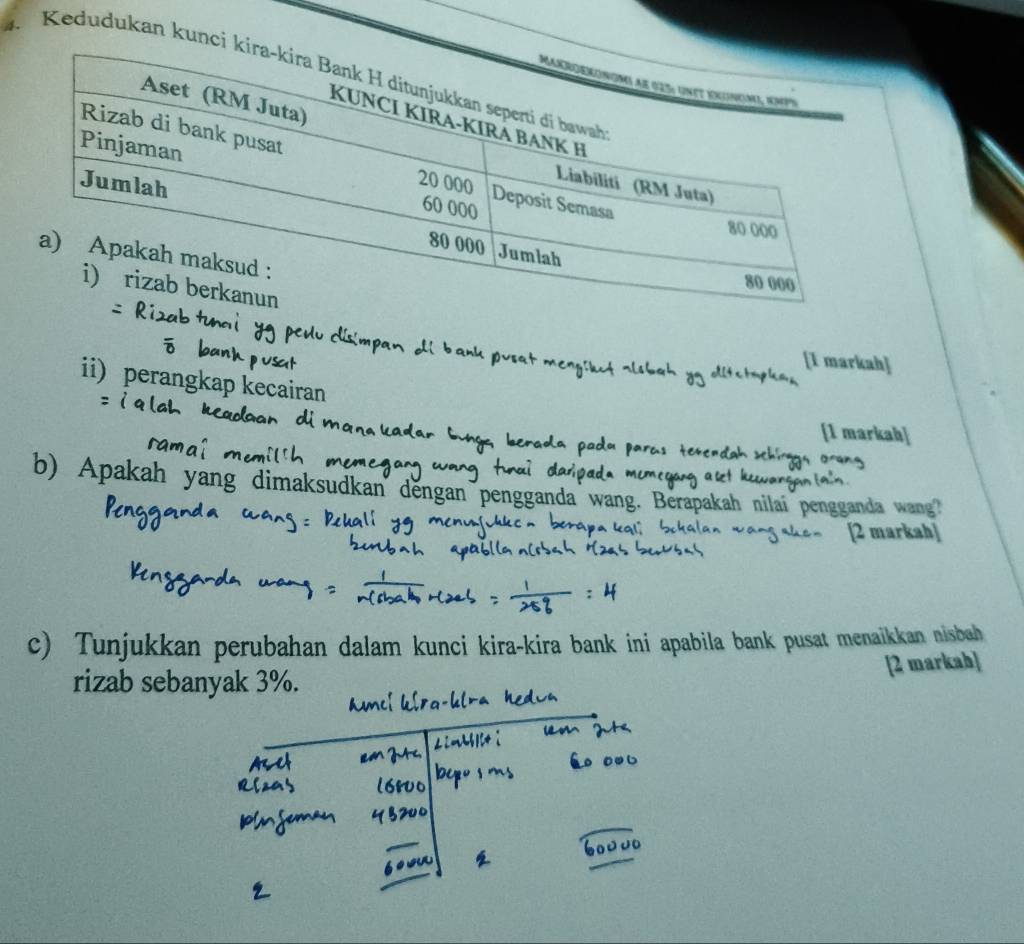 MAKROEKONOMI AE 025: UNIT EKONOMI, KMPh
4. Kedudukan kunci kira-kira Bank H ditunjukkan seperti di bawah:
KUNCI KIRA-KIRA BANK H
Aset (RM Juta) Liabiliti (RM Juta)
Rizab di bank pusat 20 000 Deposit Semasa 80 000
Pinjaman 60 000
Jumlah 80 000 Jumlah 80 000
a) Apakah maksud :
i) rizab berkanun
[1 markah]
= Rizab tunai yg perlu disimpan di bank pusat mengikut nisbah yg ditetapkan
bank pusat
ii) perangkap kecairan
[1 markah]
= ialah keadaan di mana kadar bunga berada pada paras terendah sehingga orang
ramai memilih memegang wang tunai daripada memegang aset kewangan lain.
b) Apakah yang dimaksudkan dengan pengganda wang. Berapakah nilai pengganda wang?
[2 markah]
Pengganda wang = Pekali yg menunjukkan berapa kali bekalan wang akan
berubah apabila nisbah rizab berubah
Pengganda wang = 1 / nisbah rizab = 1 / 25% = 4
c) Tunjukkan perubahan dalam kunci kira-kira bank ini apabila bank pusat menaikkan nisbah
rizab sebanyak 3%.
[2 markah]
kunci kira-kira kedua
Aset rm juta Liabiliti rm juta
Rizab 16800 Deposms 60 000
Pinjaman 43200
60000 60000